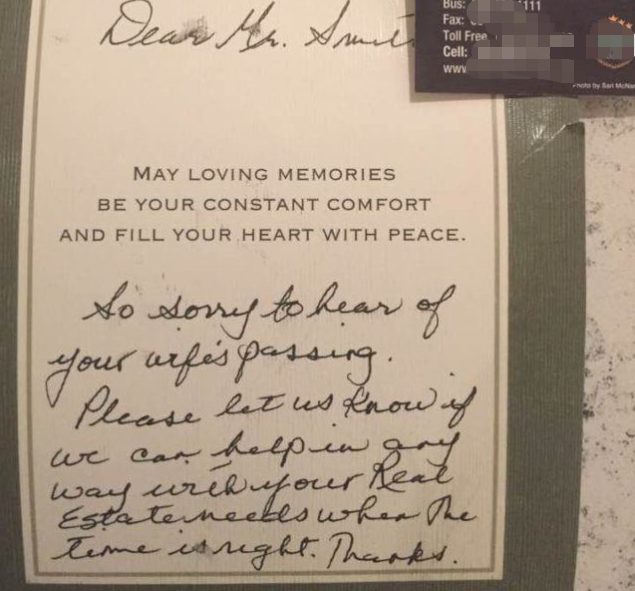 Dear Mr.
Bus: 111
Fax:
Toll Free
Cell:
www
Photo by Bari
MAY LOVING MEMORIES
BE YOUR CONSTANT COMFORT
AND FILL YOUR HEART WITH PEACE.
So sorry to hear of
your wife's passing.
Please let us know if
we can help in any
way with your Real
Estate needs when the
time is right. Thanks.